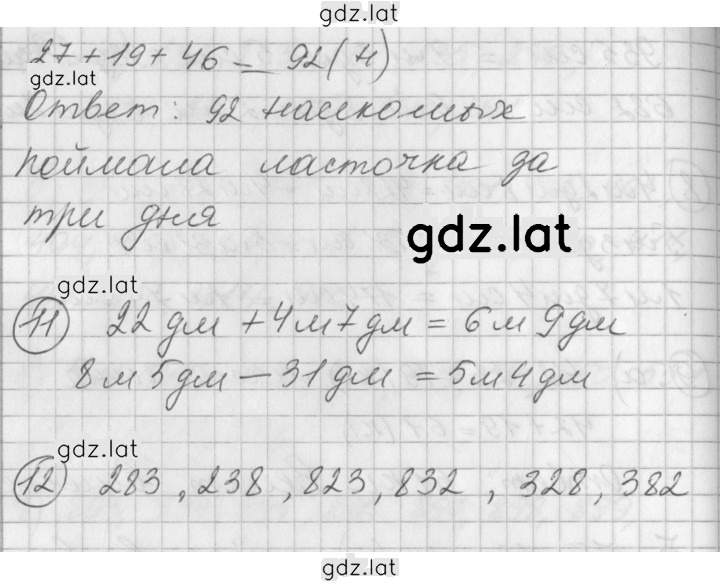 gdz.lat
27+19+46=92(н)
gdz.lat
Ответ: 92 насекомых
поймала ласточка за
три дня
gdz.lat
gdz.lat
11 22 дм + 4м7дм = 6м 9дм
8м5дм - 31дм = 5м4дм
gdz.lat
12 283, 238, 823, 832, 328, 382
gdz.lat